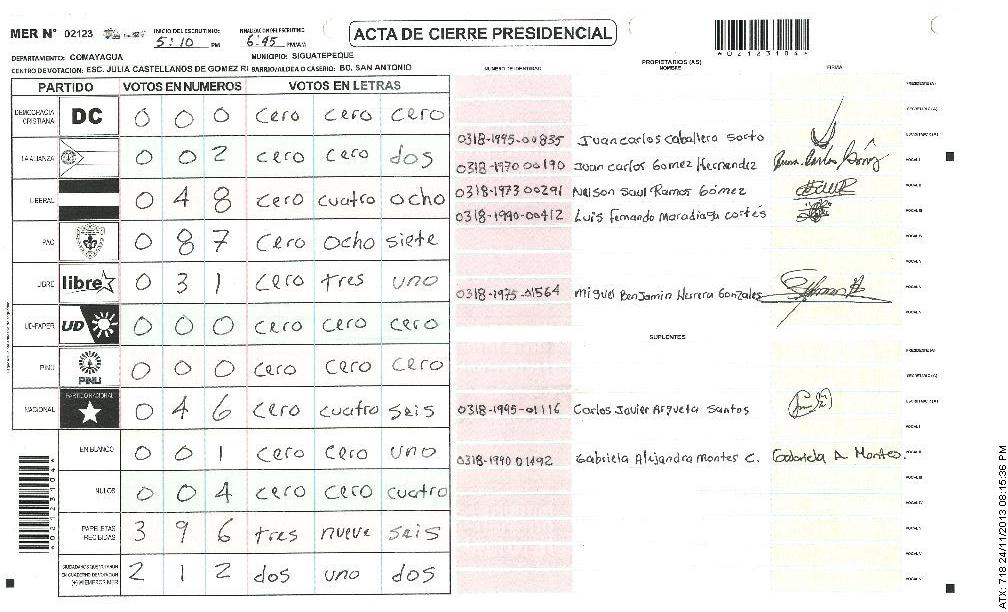 MER N° 02123
INICIO DEL ESCRUTINIO: 5:10 PM
FINALIZACION DEL ESCRUTINIO: 6:45 PM/AM
ACTA DE CIERRE PRESIDENCIAL
DEPARTAMENTO: COMAYAGUA MUNICIPIO: SIGUATEPEQUE
CENTRO DE VOTACION: ESC. JULIA CASTELLANOS DE GOMEZ RI BARRIO/ALDEA O CASERIO: BO. SAN ANTONIO
PARTIDO VOTOS EN NUMEROS VOTOS EN LETRAS
DEMOCRACIA CRISTIANA DC 0 0 0 cero cero cero
LA ALIANZA 0 0 2 cero cero dos
LIBERAL 0 4 8 cero cuatro ocho
PAC 0 8 7 cero ocho siete
LIBRE libre 0 3 1 cero tres uno
UD-FAPER UD 0 0 0 cero cero cero
PINU PINU 0 0 0 cero cero cero
NACIONAL PARTIDO NACIONAL 0 4 6 cero cuatro seis
EN BLANCO 0 0 1 cero cero uno
NULOS 0 0 4 cero cero cuatro
PAPELETAS RECIBIDAS 3 9 6 tres nueve seis
CIUDADANOS QUE VOTARON EN CUADERNO DE VOTACION (+) MIEMBROS MER 2 1 2 dos uno dos
NUMERO DE IDENTIDAD PROPIETARIOS (AS) NOMBRE FIRMA
PRESIDENTE(A)
SECRETARIO (A)
0318-1995-00835 Juan carlos caballero sorto ESCRUTADOR (A)
0318-1970 00190 Juan carlos Gomez Hernandez VOCAL I
0318-1973 00291 Nelson Saul Ramos Gómez VOCAL II
0318-1990-00412 Luis fernando Maradiaga cortés VOCAL III
VOCAL IV
VOCAL V
0318-1975-01564 miguel Benjamin Herrera Gonzales
SUPLENTES
PRESIDENTE(A)
SECRETARIO (A)
0318-1995-01116 Carlos Javier Argueta Santos ESCRUTADOR (A)
VOCAL I
0318-1990 01492 Gabriela Alejandra montes C. Gabriela A Montes VOCAL II
VOCAL III
VOCAL IV
VOCAL V
6021231046
6021231046
ATX: 718 24/11/2013 08:15:36 PM